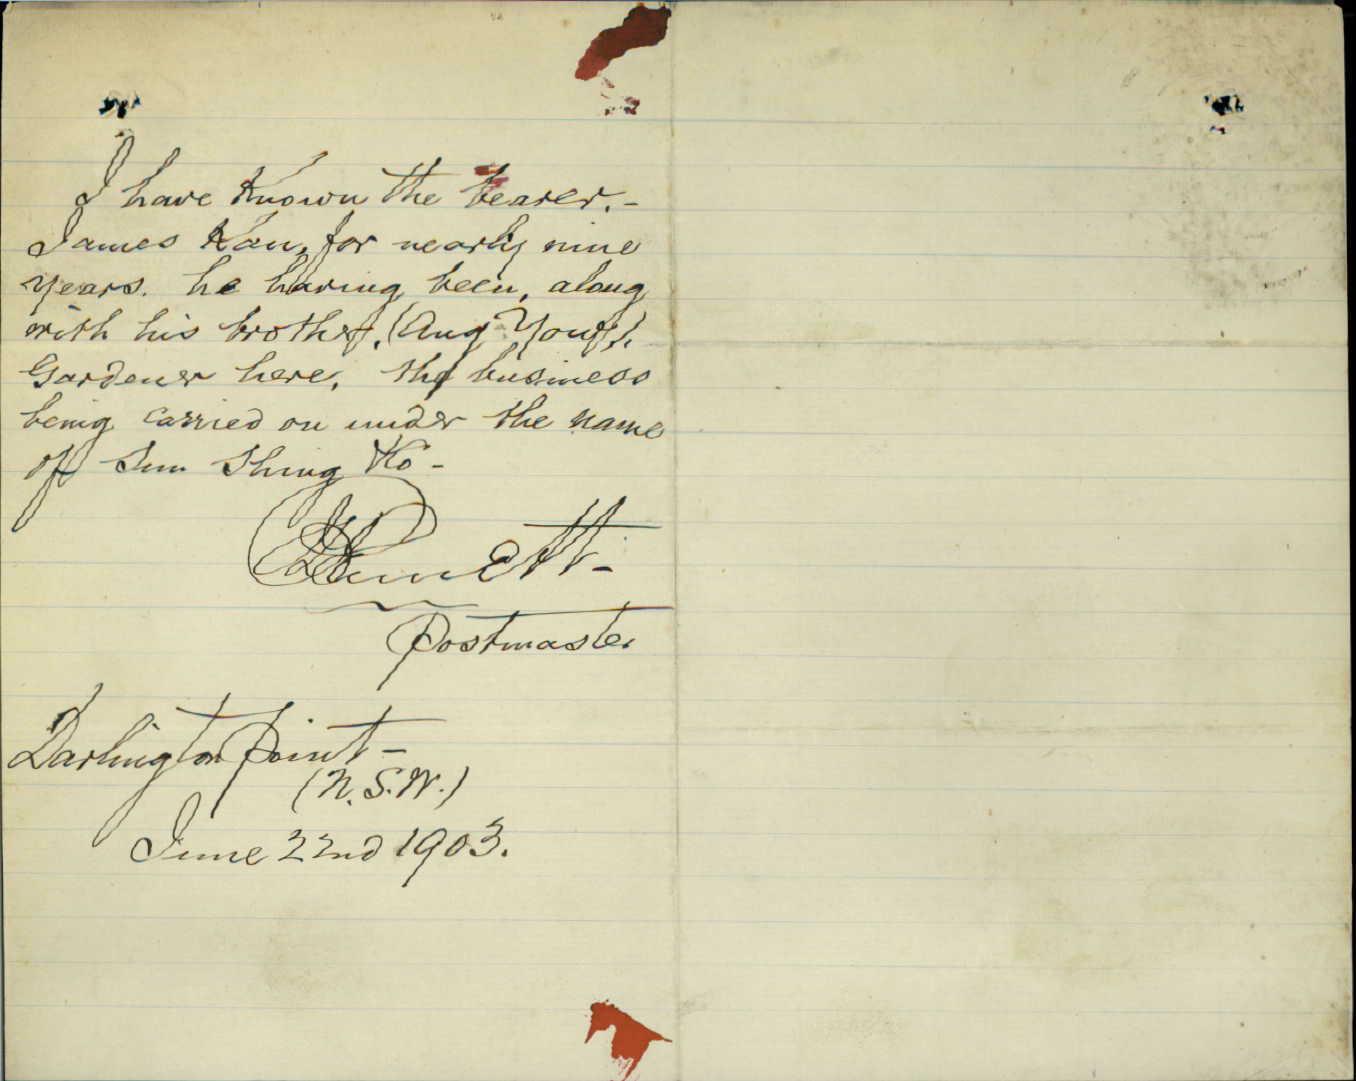 I have Known the bearer.-
James Kau, for nearly nine
years. he having been, along
with his brother, (Aug Youg),
Gardener here, the business
being carried on under the name
of Sun Shing Ko -
Bennett -
Postmaster
Darlington Point -
(N.S.W.)
June 22nd 1903.